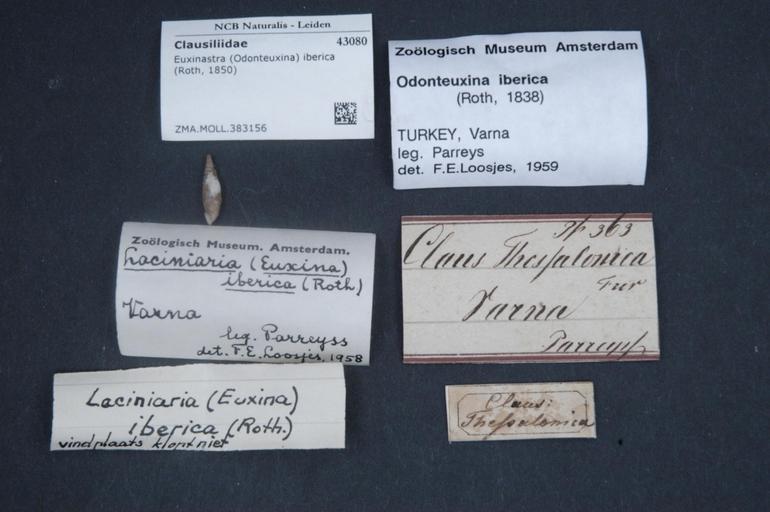 NCB Naturalis - Leiden
Clausiliidae 43080
Euxinastra (Odonteuxina) iberica
(Roth, 1850)
ZMA.MOLL.383156
Zoölogisch Museum Amsterdam
Odonteuxina iberica
(Roth, 1838)
TURKEY, Varna
leg. Parreys
det. F.E.Loosjes, 1959
Zoölogisch Museum. Amsterdam.
Laciniaria (Euxina)
iberica (Roth)
Varna
leg. Parreyss
det. F.E. Loosjes, 1958
Pf 363
Claus Thessalonica
Tur
Varna
Parreyss
Laciniaria (Euxina)
iberica (Roth.)
vindplaats klopt niet
Claus:
Thessalonica